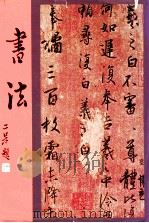 書法
羲之白不審尊體
何如遲復奉告羲之中冷
尋復白羲之白
奉橘三百枚霜未降